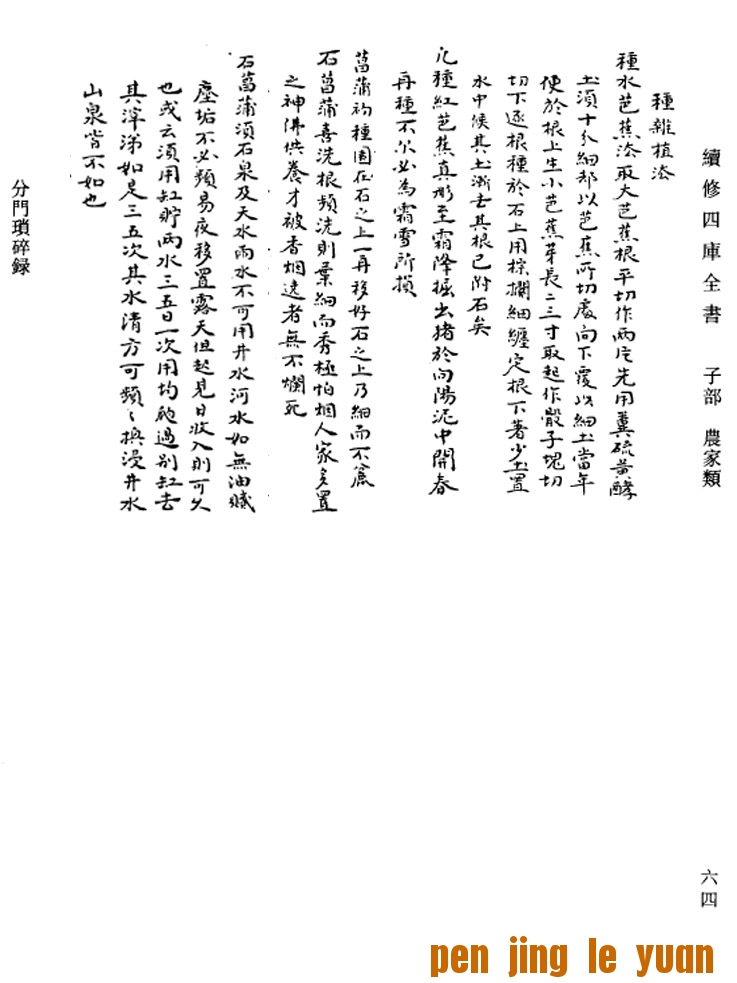 續修四庫全書 子部 農家類
六四
種雜植法
種水芭蕉法取大芭蕉根平切作兩片先用糞硫黃酵
土須十分細却以芭蕉所切處向下覆以細土當年
便於根上生小芭蕉芽長二三寸取起作骰子塊切
切下逐根種於石上用棕櫚細纏定根下著少土置
水中候其土漸去其根已附石矣
凡種紅芭蕉真形至霜降掘出猪於向陽泥中開春
再種不尔必為霜雪所損
菖蒲初種固在石之上一再移好石之上乃細而不
石菖蒲喜洗根頻洗則葉細而秀極怕烟人家多置
之神佛供養才被香烟逸者無不爛死
石菖蒲須石泉及天水雨水不可用井水河水如無油膩
塵垢不必頻易夜移置露天但起見日收入則可久
也或云須用缸貯雨水三五日一次用均過別缸去
其滓涕如是三五次其水清方可頻〻換浸井水
山泉皆不如也
分門瑣碎録
pen jing le yuan